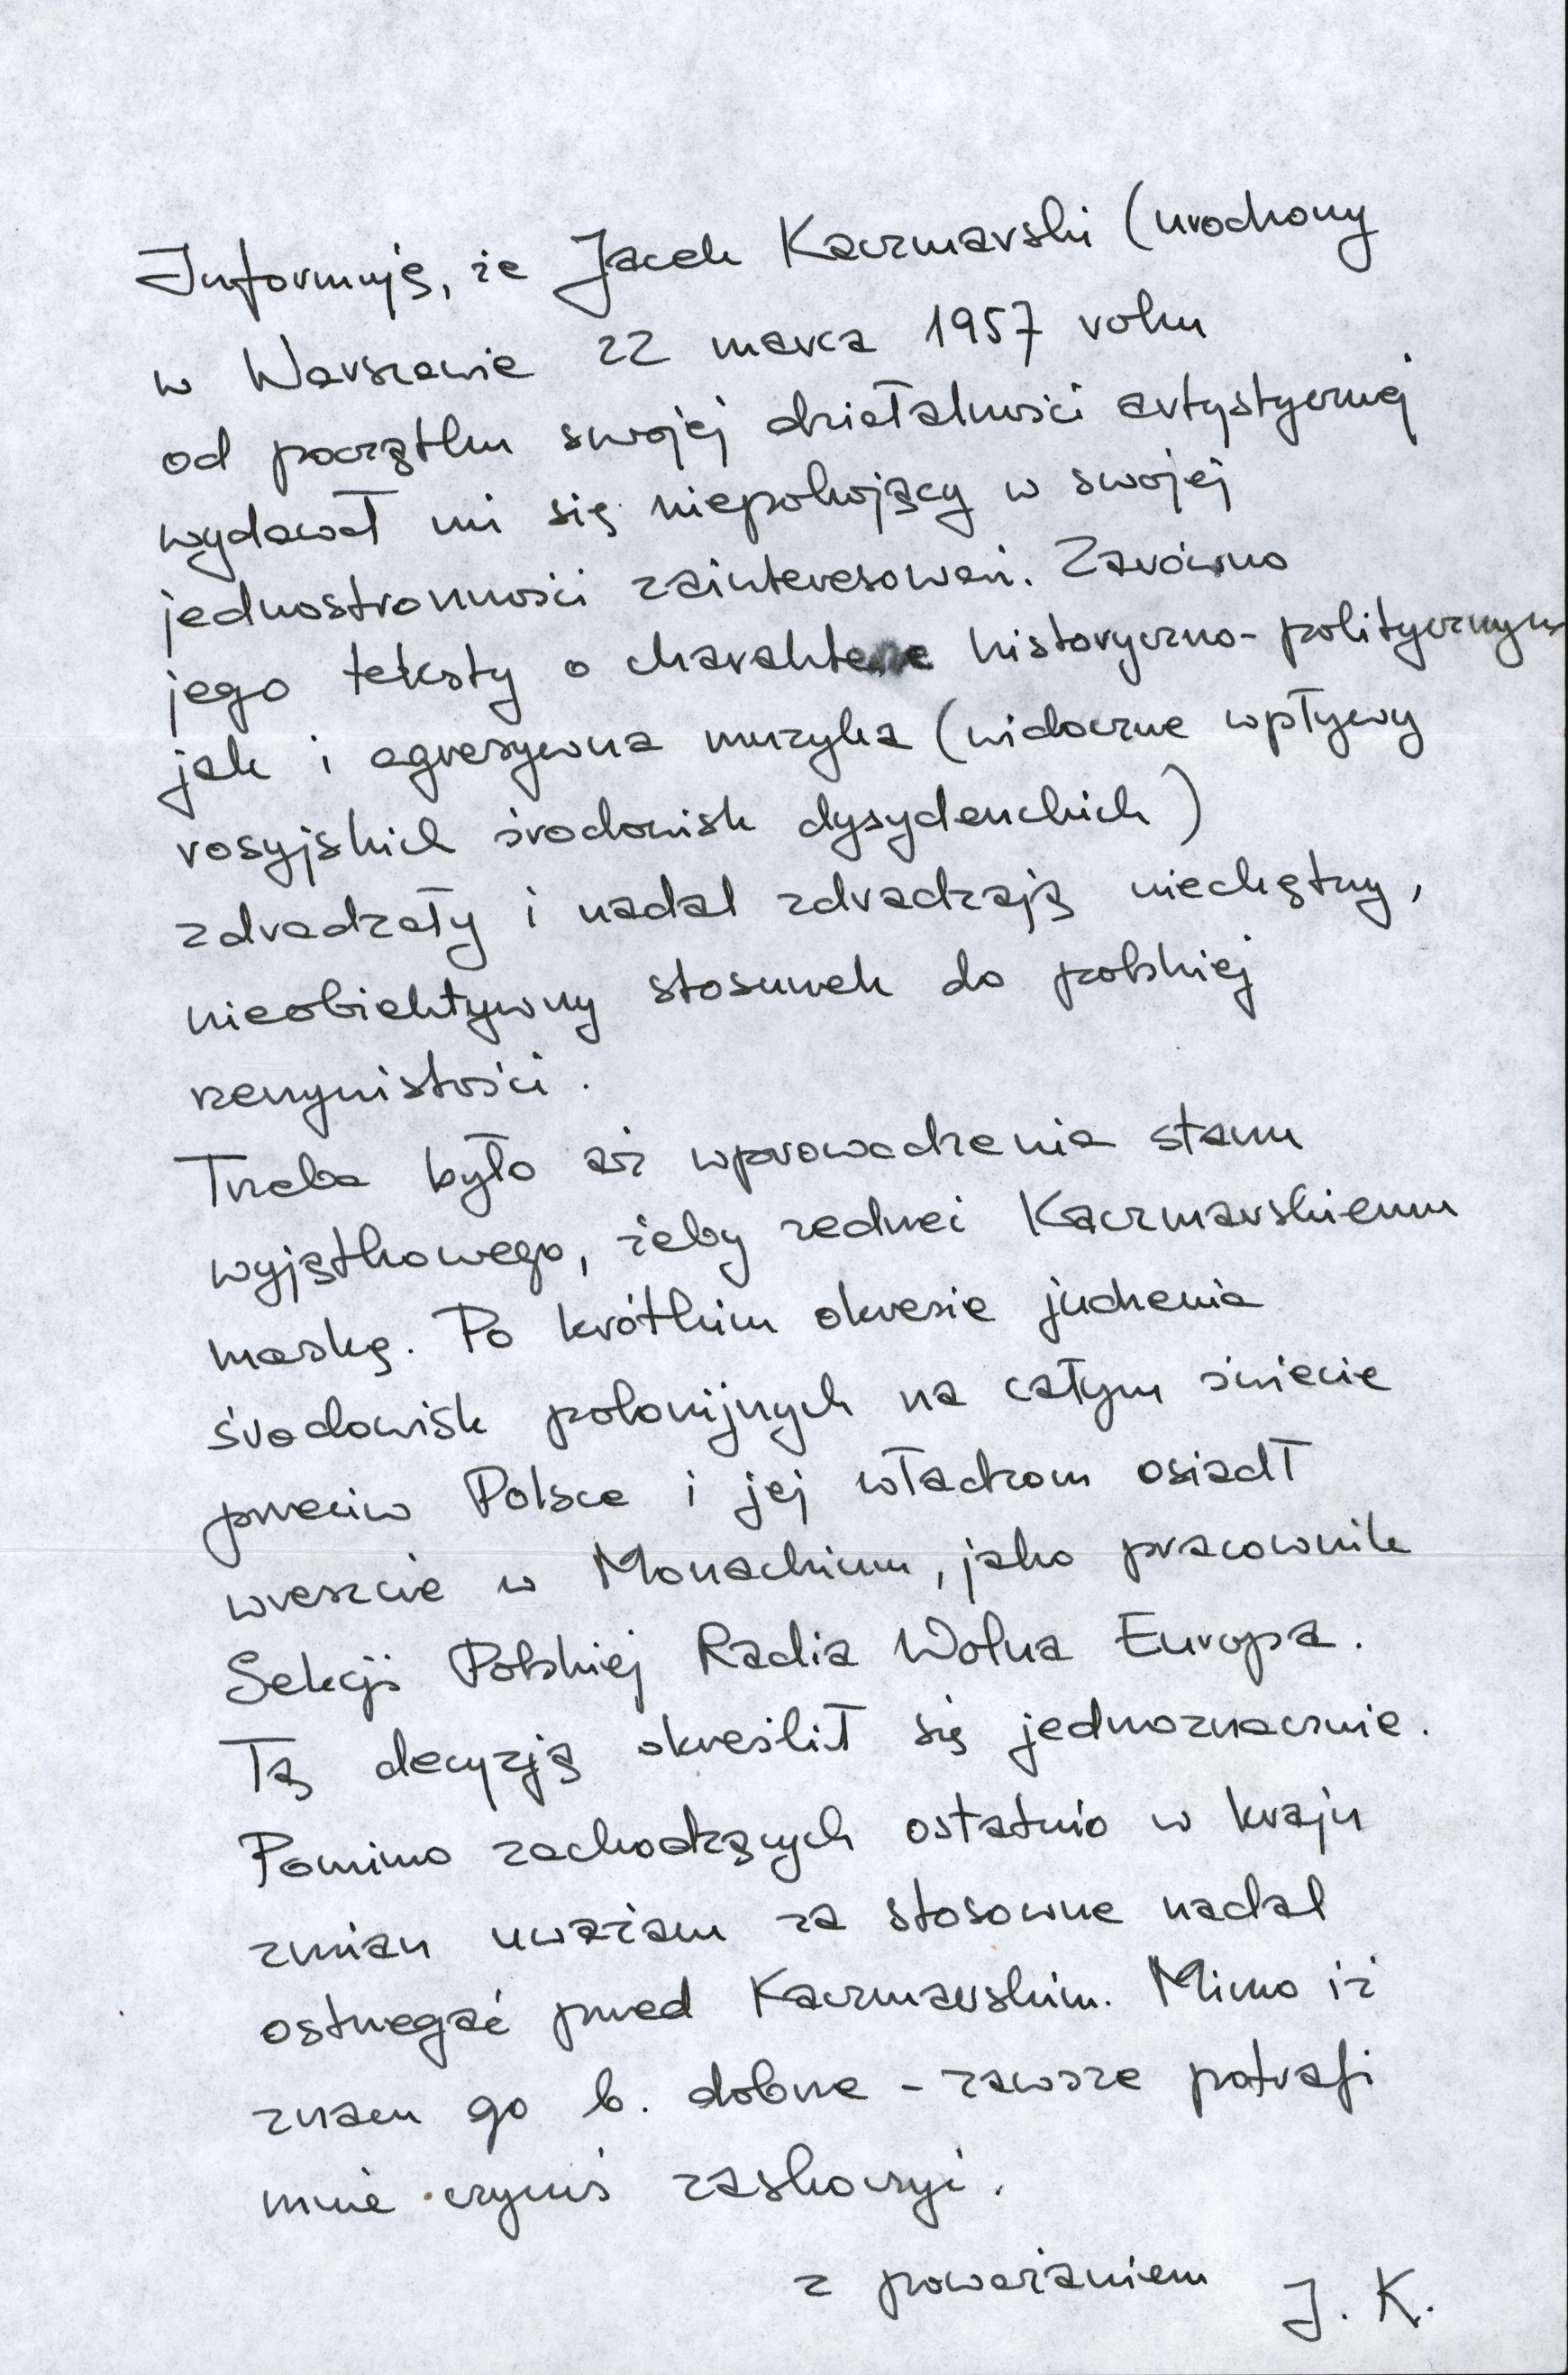 Informuję, że Jacek Kaczmarski (urodzony
w Warszawie 22 marca 1957 roku
od początku swojej działalności artystycznej
wydawał mi się niepokojący w swojej
jednostronności zainteresowań. Zarówno
jego teksty o charakterze historyczno-politycznym
jak i agresywna muzyka (widoczne wpływy
rosyjskich środowisk dysydenckich)
zdradzały i nadal zdradzają niechętny,
nieobiektywny stosunek do polskiej
rzeczywistości.
Trzeba było aż wprowadzenia stanu
wyjątkowego, żeby zedrzeć Kaczmarskiemu
maskę. Po krótkim okresie judzenia
środowisk polonijnych na całym świecie
przeciw Polsce i jej władzom osiadł
wreszcie w Monachium, jako pracownik
Sekcji Polskiej Radia Wolna Europa.
Tą decyzją określił się jednoznacznie.
Pomimo zachodzących ostatnio w kraju
zmian uważam za stosowne nadal
ostrzegać przed Kaczmarskim. Mimo iż
znam go b. dobrze - zawsze potrafi
mnie czymś zaskoczyć.
z poważaniem J. K.